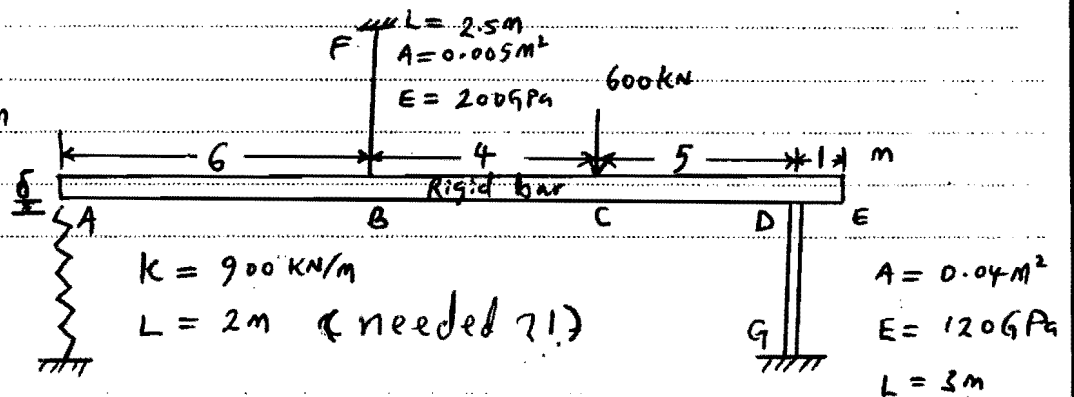 L = 2.5m
F
A = 0.005m²
E = 200GPa
600kN
n
6
4
5
1
m
Rigid bar
δ
A
B
C
D
E
K = 900 KN/m
L = 2m (needed ?!)
G
A = 0.04m²
E = 120GPa
L = 3m